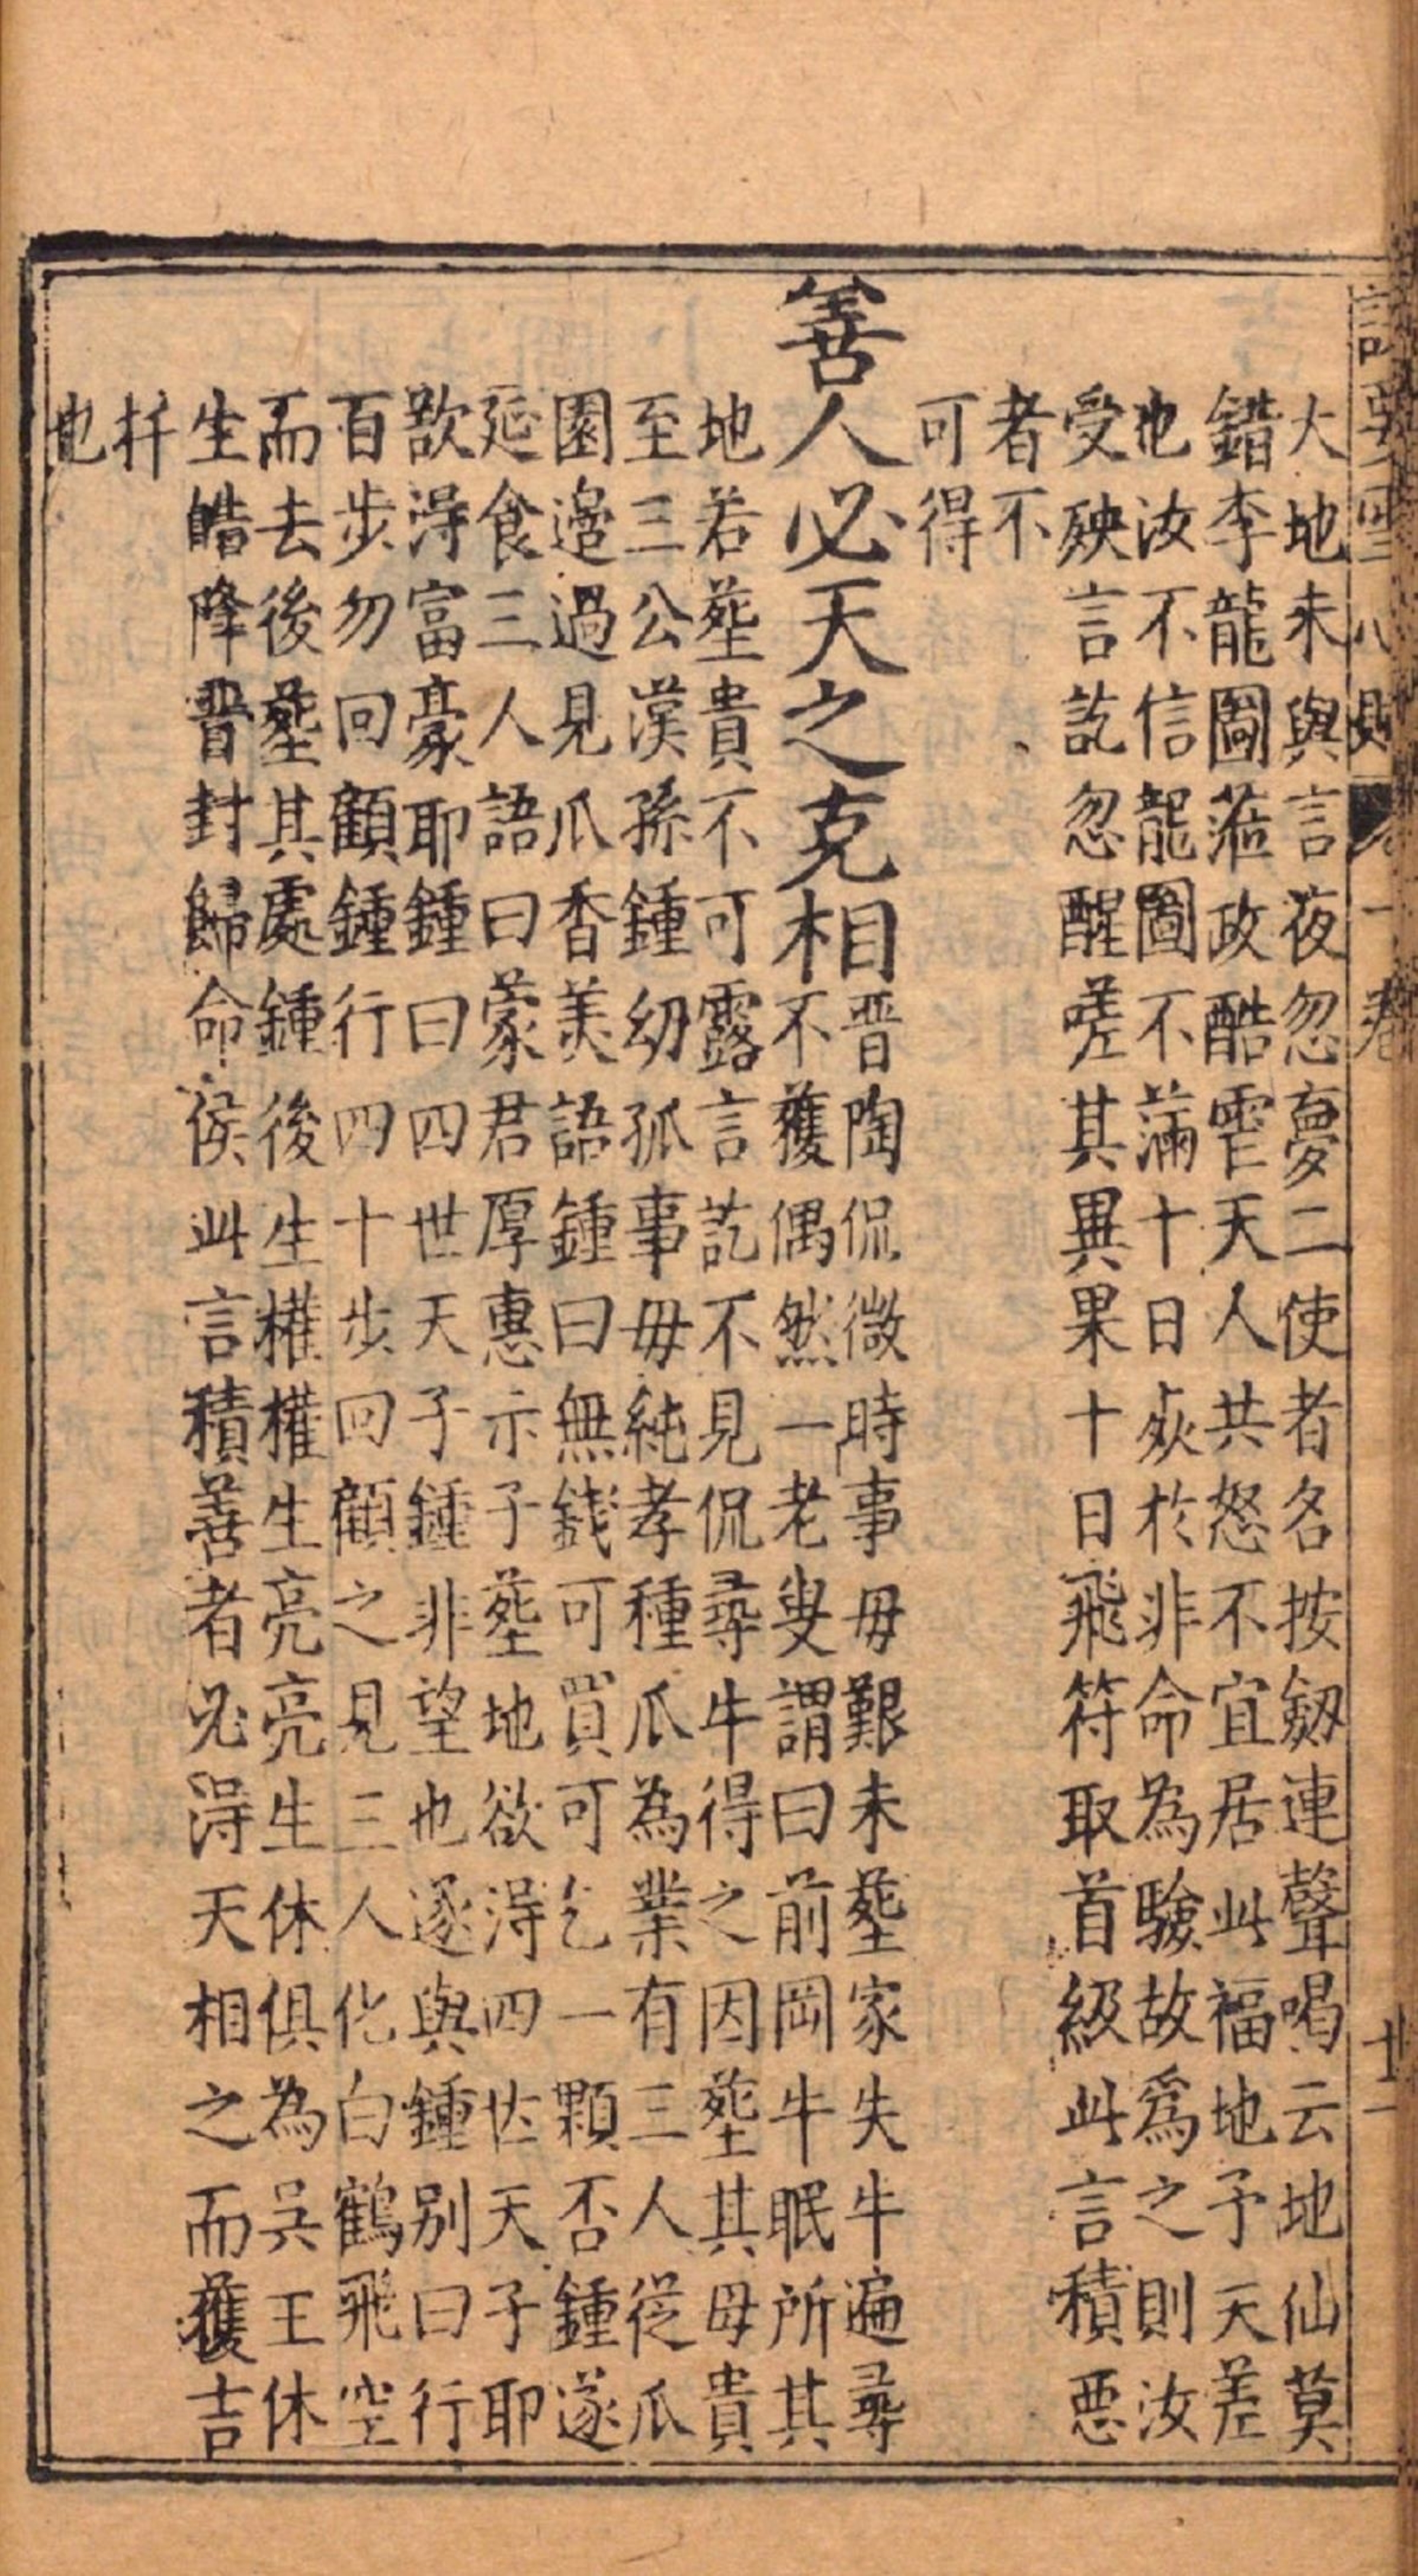 大地未與言夜忽夢二使者名按劔連聲喝云地仙莫
錯李龍圖蒞政酷霅天人共怒不宜居此福地予天差
也汝不信龍圖不滿十日妖於非命為驗故爲之則汝
受殃言訖忽醒嗟其異果十日飛符取首級此言積惡
者不
可得
善人必天之克相
晋陶侃微時事毋艱未塟家失牛遍尋
不獲偶然一老叟謂曰前岡牛眠所其
地若塟貴不可露言訖不見侃尋牛得之因塟其母貴
至三公漢孫鍾幼孤事毋純孝種瓜為業有三人從瓜
園邉過見瓜香美語鍾曰無錢可買可乞一顆否鍾遂
延食三人語曰蒙君厚惠示子塟地欲淂四世天子耶
歆淂富豪耶鍾曰四世天子鍾非望也遂與鍾别曰行
百步勿回顧鍾行四十步回顧之見三人化白鶴飛空
而去後塟其處鍾後生權權生亮亮生休俱為吴王休
生皓降晋封歸命侯此言積善者必淂天相之而獲吉
扦
也